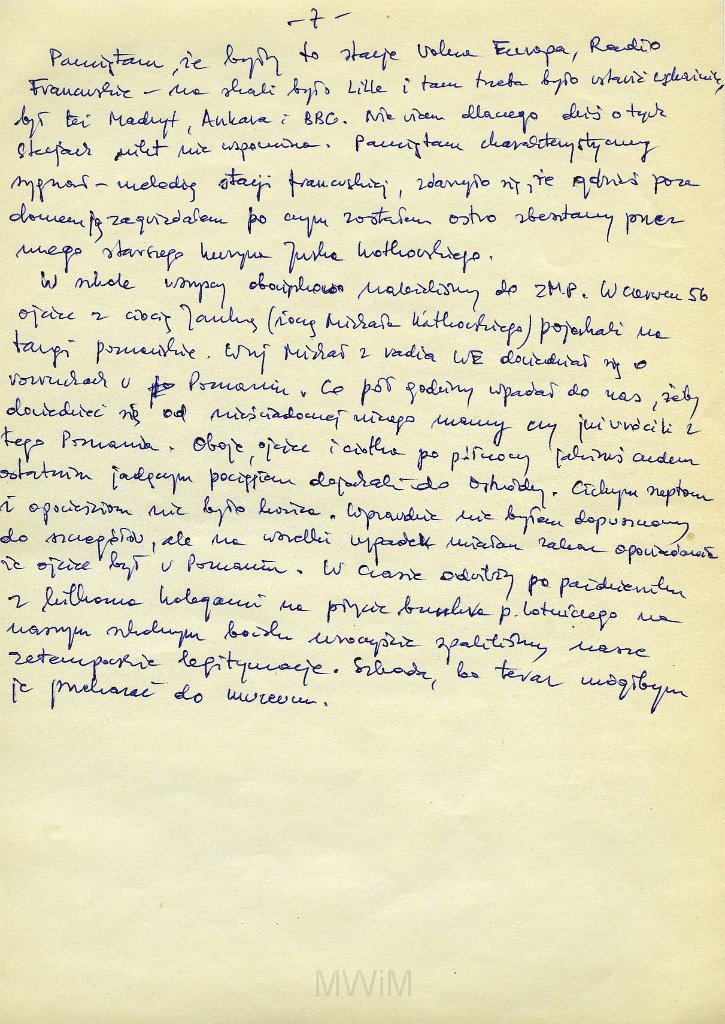 - 7 -
Pamiętam, że były to stacje Wolna Europa, Radio
Francuskie – na skali było Lille i tam trzeba było ustawić wskaźnik,
był też Madryt, Ankara i BBC. Nie wiem dlaczego dziś o tych
stacjach nikt nie wspomina. Pamiętam charakterystyczny
sygnał – melodię stacji francuskiej, zdarzyło się, że gdzieś poza
domem ją zagwizdałem po czym zostałem ostro zbesztany przez
mego starszego kuzyna Jurka Kotkowskiego.
W szkole wszyscy obowiązkowo należeliśmy do ZMP. W czerwcu 56
ojciec z ciocią Janką (żoną Michała Kotkowskiego) pojechali na
targi poznańskie. Wuj Michał z radia WE dowiedział się o
rozruchach w Poznaniu. Co pół godziny wpadał do nas, żeby
dowiedzieć się od nieświadomej niczego mamy czy już wrócili z
tego Poznania. Oboje, ojciec i ciotka po północy jakimś cudem
ostatnim jadącym pociągiem dojechali do Ostródy. Cichym szeptom
i opowieściom nie było końca. Wprawdzie nie byłem dopuszczony
do szczegółów, ale na wszelki wypadek miałem zakaz opowiadania
że ojciec był w Poznaniu. W czasie odwilży po październiku
z kilkoma kolegami na płycie bunkra p. lotniczego na
naszym szkolnym boisku uroczyście spaliliśmy nasze
zetempowskie legitymacje. Szkoda, bo teraz mógłbym
je przekazać do muzeum.
MWiM